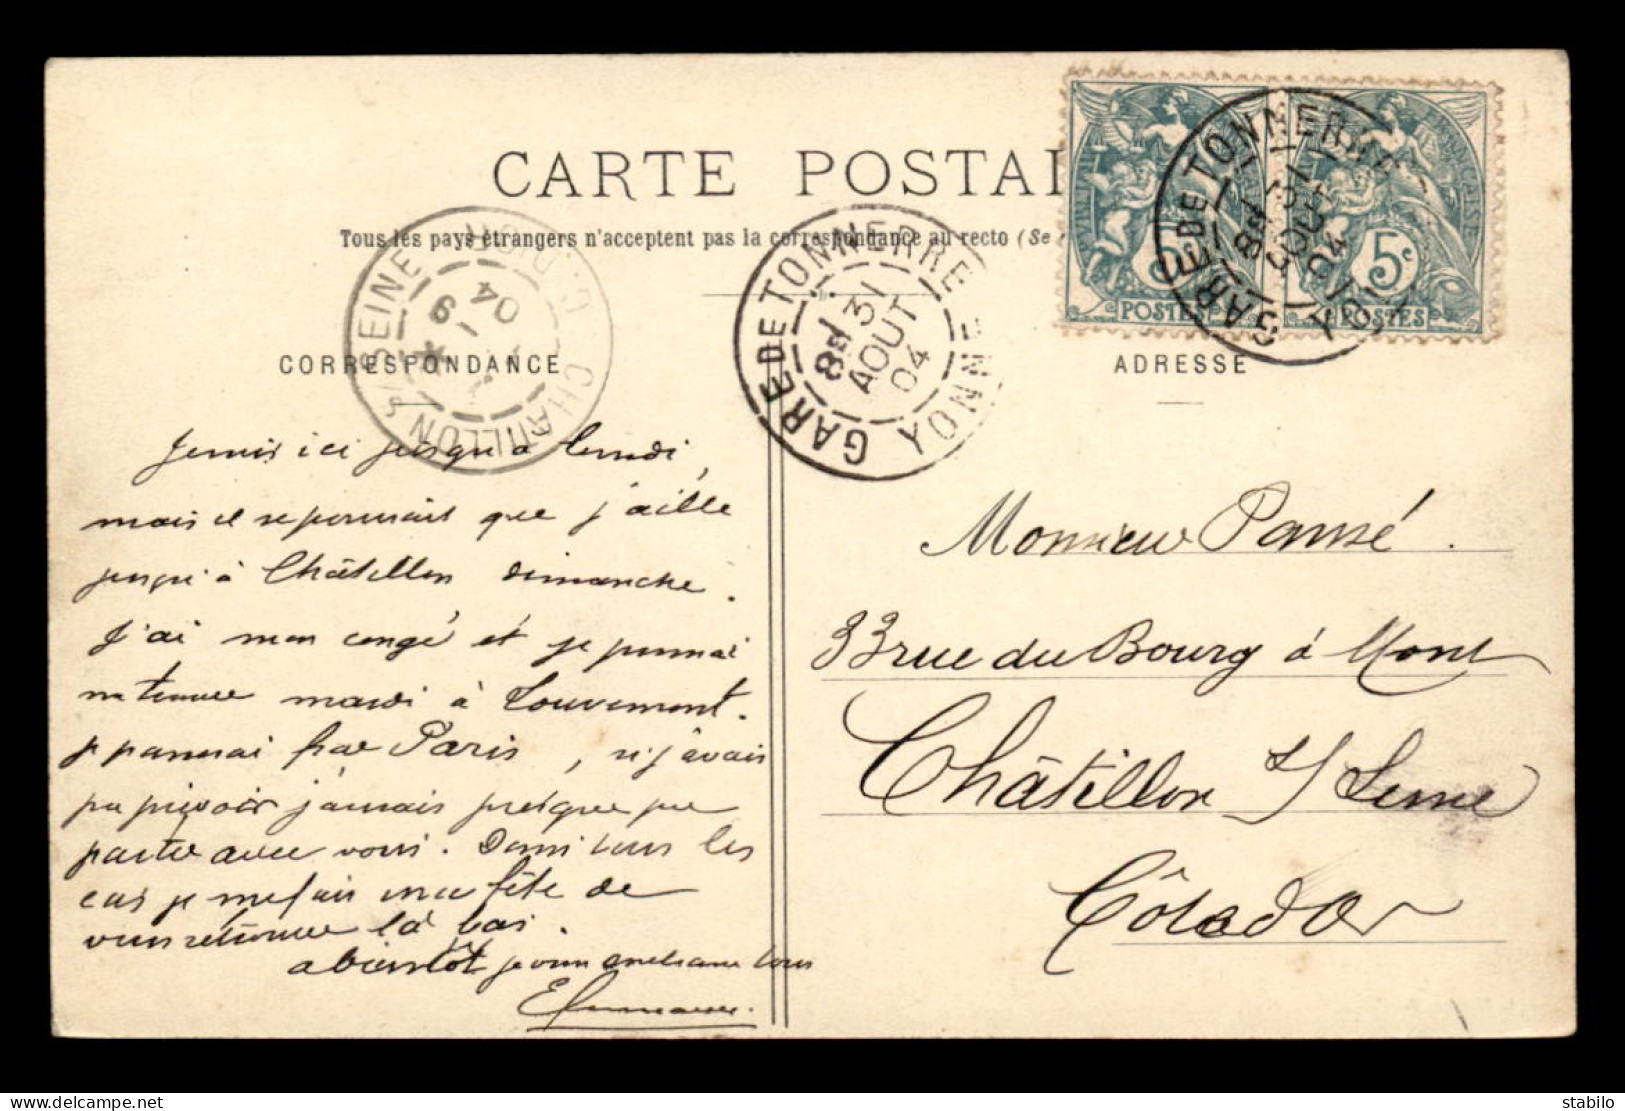 CARTE POSTAL
Tous les pays étrangers n'acceptent pas la correspondance au recto (Se
CORRESPONDANCE
ADRESSE
CHATILLON S/ SEINE
9 04
GARE DE TONNERRE YONNE
8E 31 AOUT 04
GARE DE TONNERRE YONNE
8E 31 AOUT 04
5c 5c
POSTES POSTES
ici jusqu'à lundi,
mais il se pourrait que j'aille
jusqu'à Châtillon dimanche.
J'ai mon congé et je
mardi à Louvemont.
je passerai par Paris, si j'avais
pu prévoir j'amais presque pu
partir avec vous. Dans tous les
cas je me fais une fête de
vous retrouver là bas.
a bientôt je vous embrasse tous
Monsieur Pansé.
33 rue du Bourg à Mont
Châtillon s/ Seine
Côte d'Or
delcampe.net
stabilo